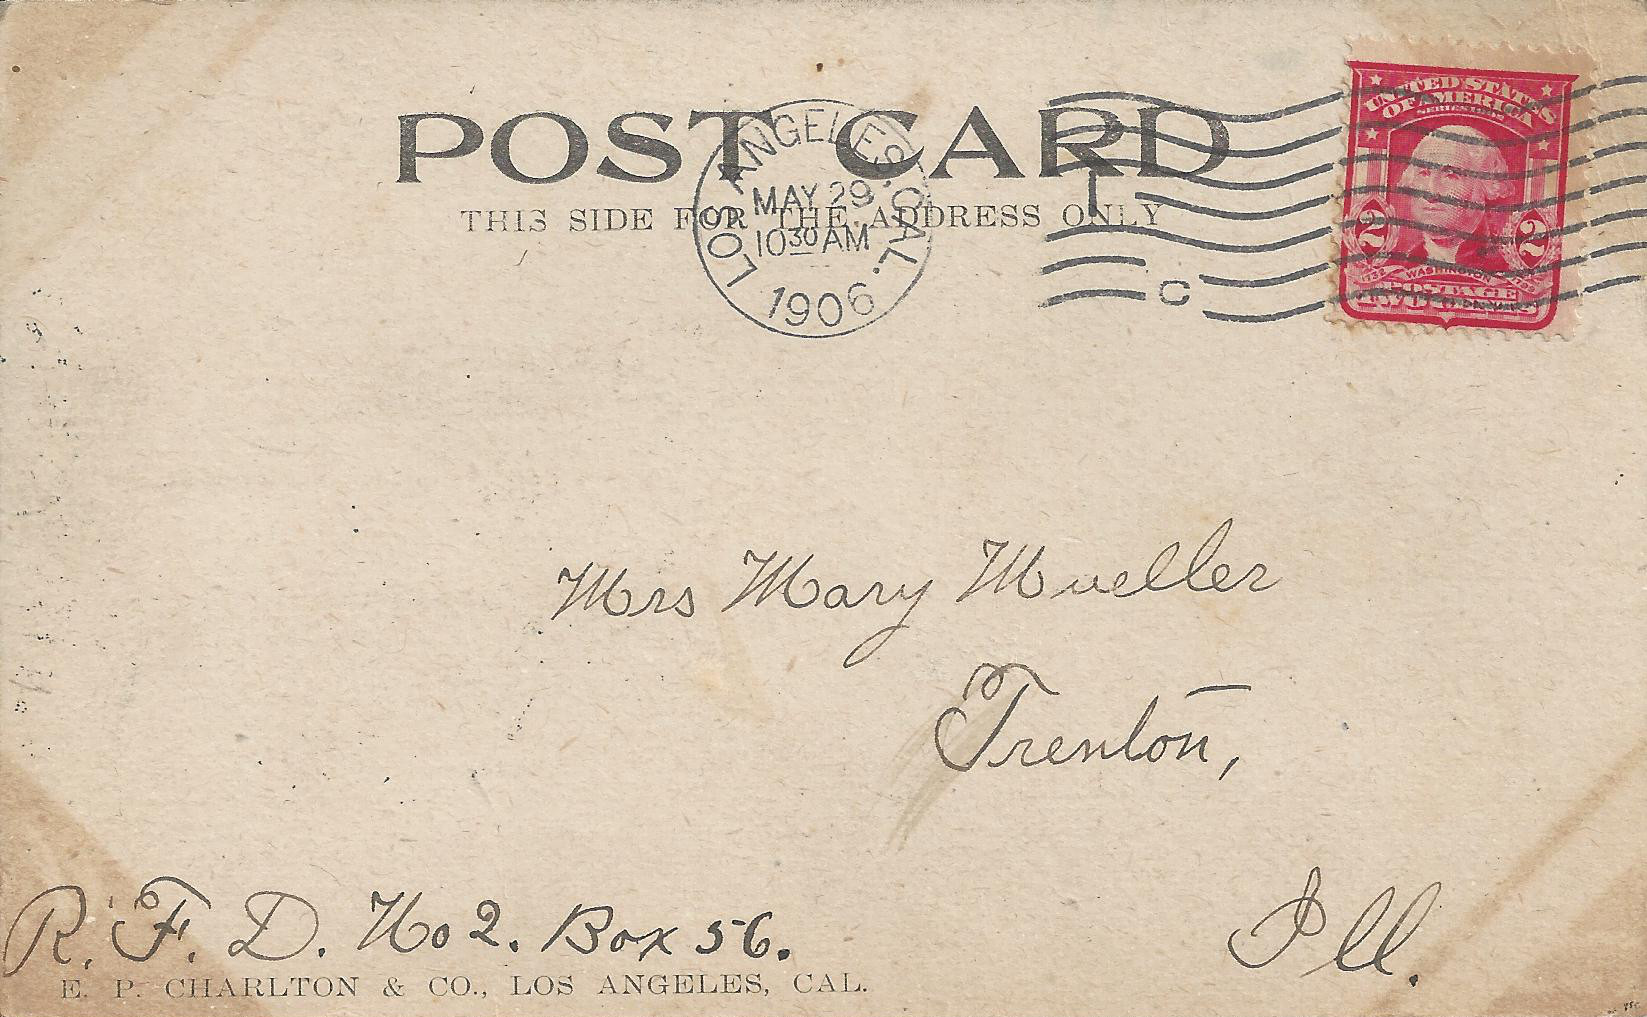 POST CARD
THIS SIDE FOR THE ADDRESS ONLY
LOS ANGELES, CAL.
MAY 29
10 30 AM
1906
C
UNITED STATES
OF AMERICA
SERIES 1902
2 2
1732 WASHINGTON 1799
POSTAGE
TWO CENTS
Mrs Mary Mueller
Trenton,
Ill.
R. F. D. No 2. Box 56.
E. P. CHARLTON & CO., LOS ANGELES, CAL.